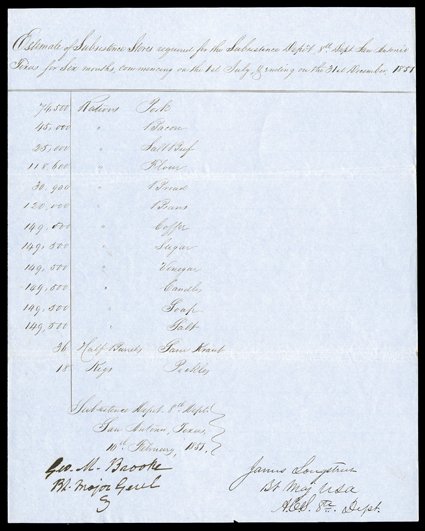 Estimate of Subsistence Stores required for the Subsistence Depôt 8th Dept San Antonio
Texas for Six months, commencing on the 1st July, & ending on the 31st December, 1851
74,500 Rations Pork
45,000 " Bacon
25,000 " Salt Beef
118,600 " Flour
30,900 " Bread
120,000 " Beans
149,500 " Coffee
149,500 " Sugar
149,500 " Vinegar
149,500 " Candles
149,500 " Soap
149,500 " Salt
36 Half Barrels Saur Kraut
18 Kegs Pickles
Subsistence Depôt 8th Dept
San Antonio, Texas,
10th February, 1851.
Geo. M. Brooke
Bt. Major Genl
James Longstreet
Bt Maj USA
A.C.S. 8th Dept.